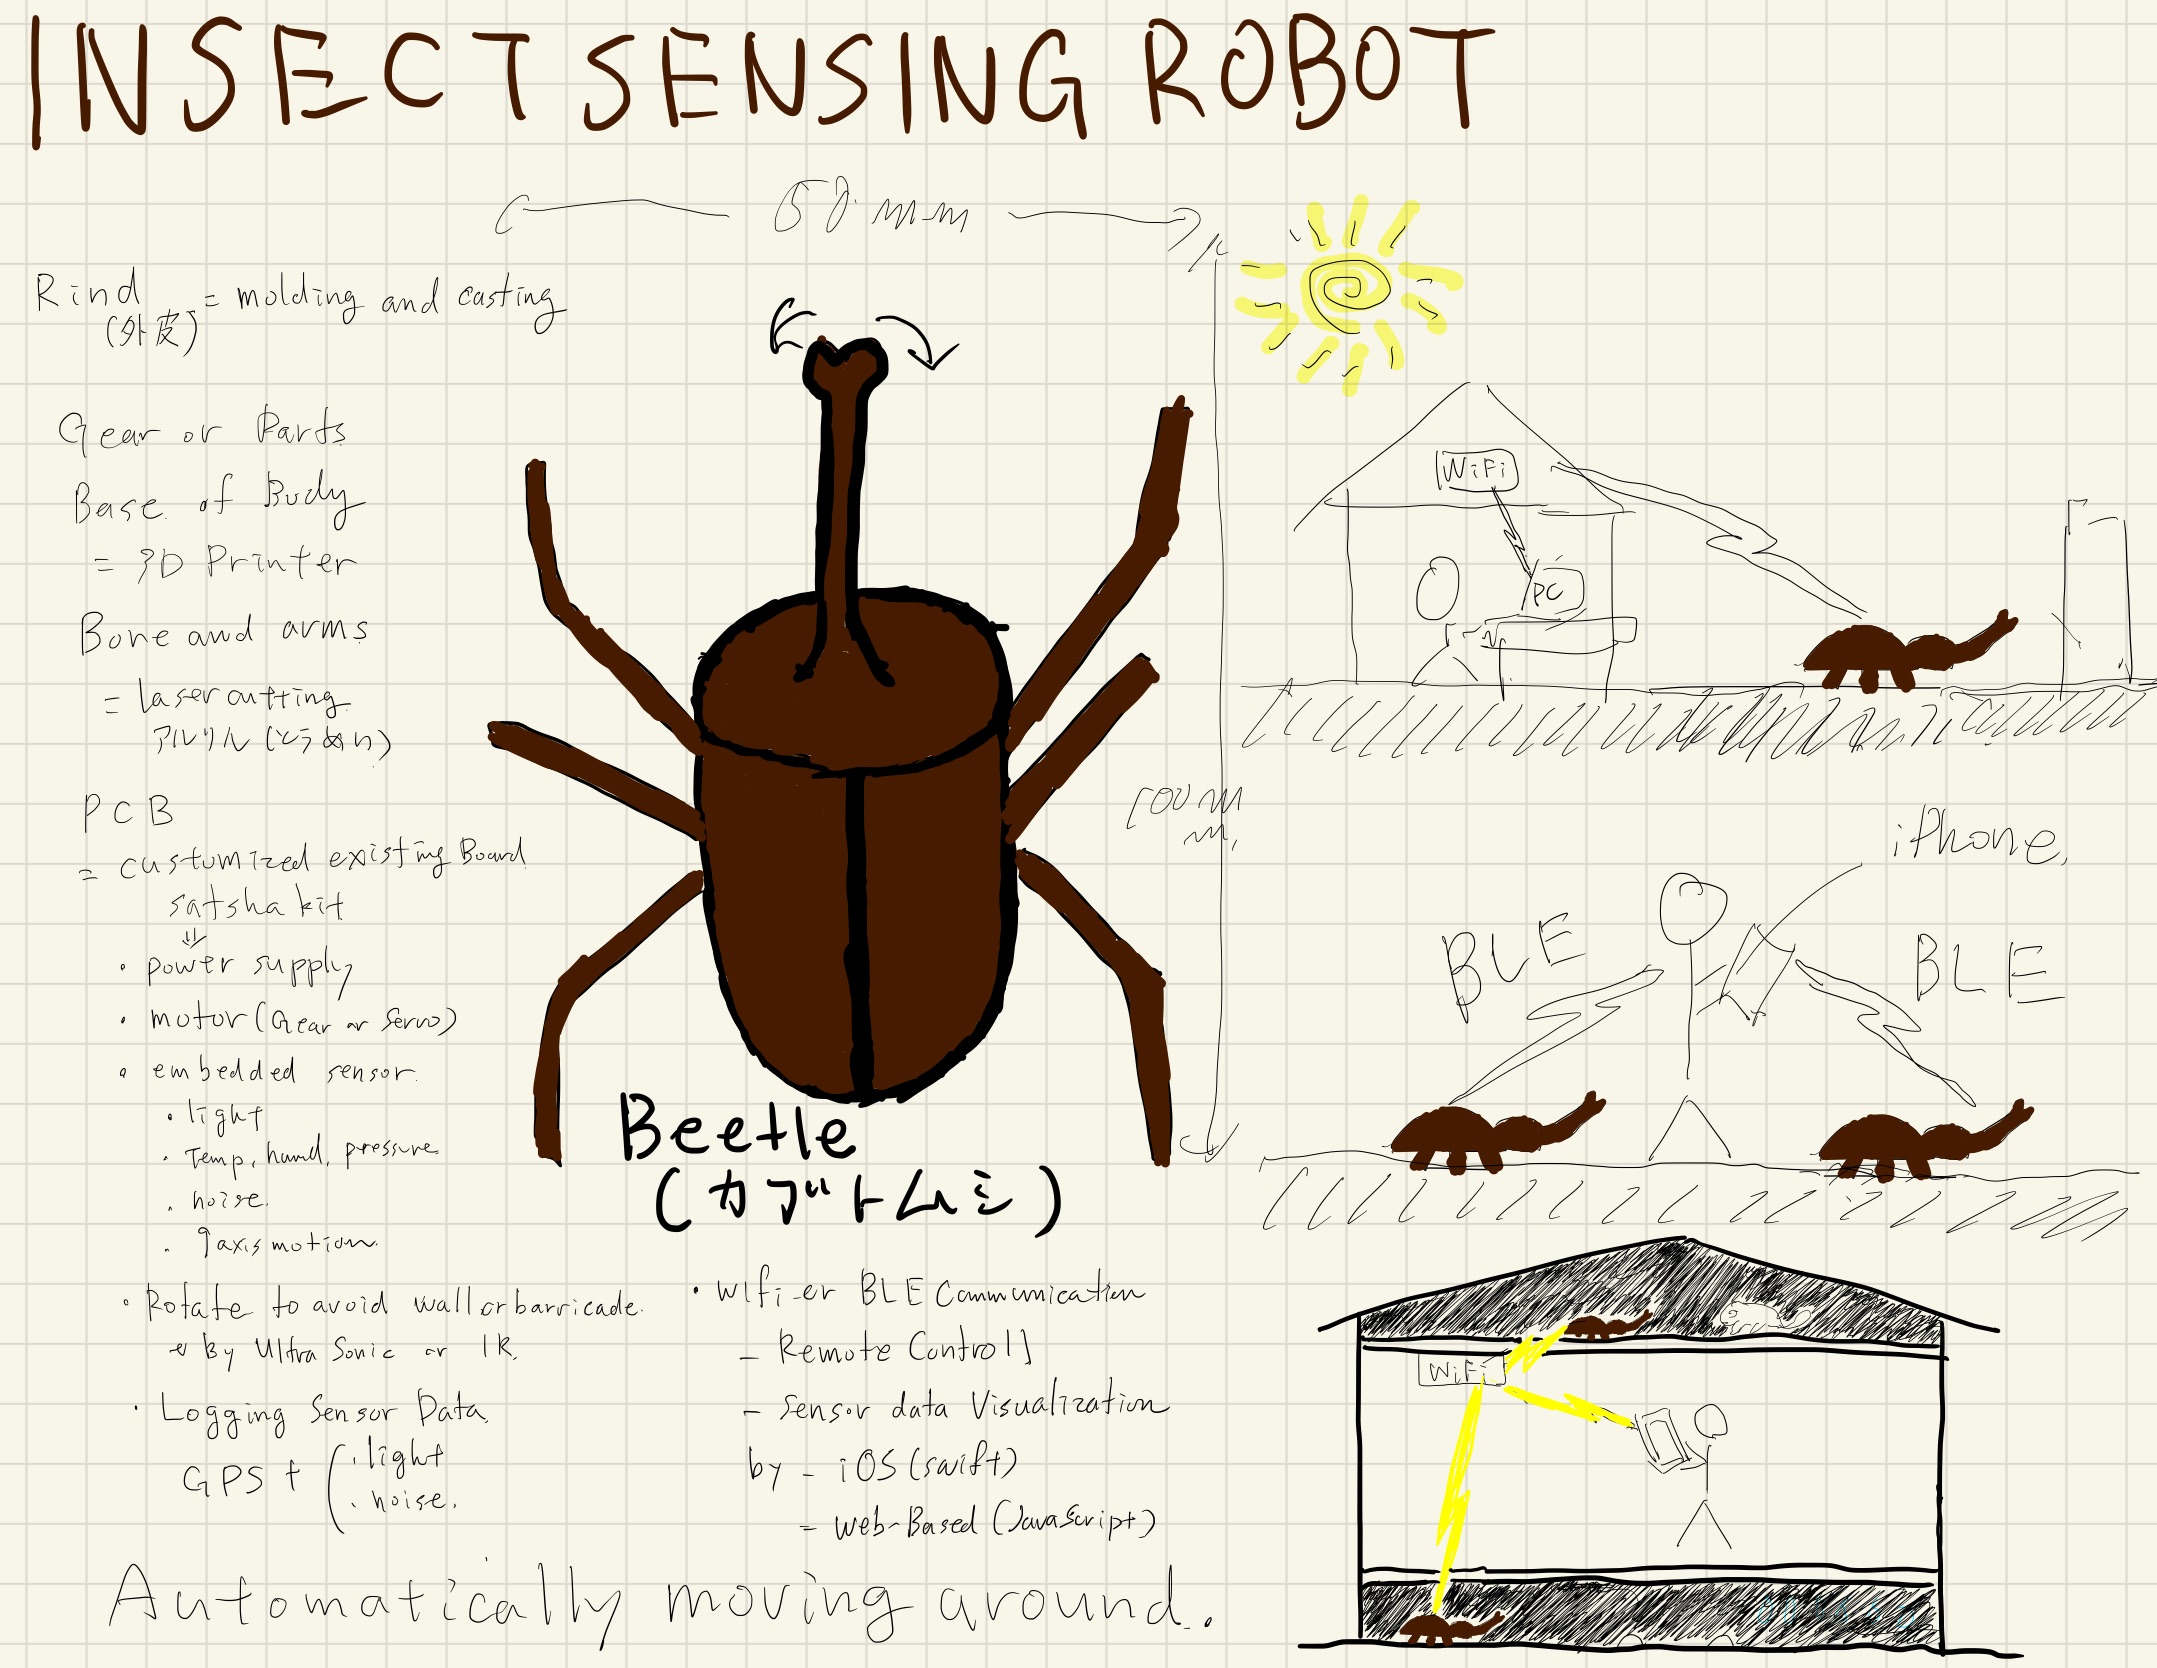 INSECT SENSING ROBOT
mm
Rind = molding and casting
(外皮)
Gear or Parts
Base of Body
= 3D Printer
Bone and arms
= laser cutting
PCB
= customized existing Board
satsha kit
⇓
・power supply
・motor (Gear or Servo)
・embedded sensor
・light
・Temp, humd, pressure
・noise.
・9axis motion.
・Rotate to avoid wall or barricade.
by Ultra Sonic or IR.
・Logging Sensor Data.
GPS + ( ・light
・noise.
Beetle
(カブトムシ)
・Wifi or BLE Communication
- Remote Control
- Sensor data Visualization
by - iOS (swift)
= Web-Based (JavaScript)
Automatically moving around.
WiFi
PC
iPhone,
BLE
BLE
WiFi